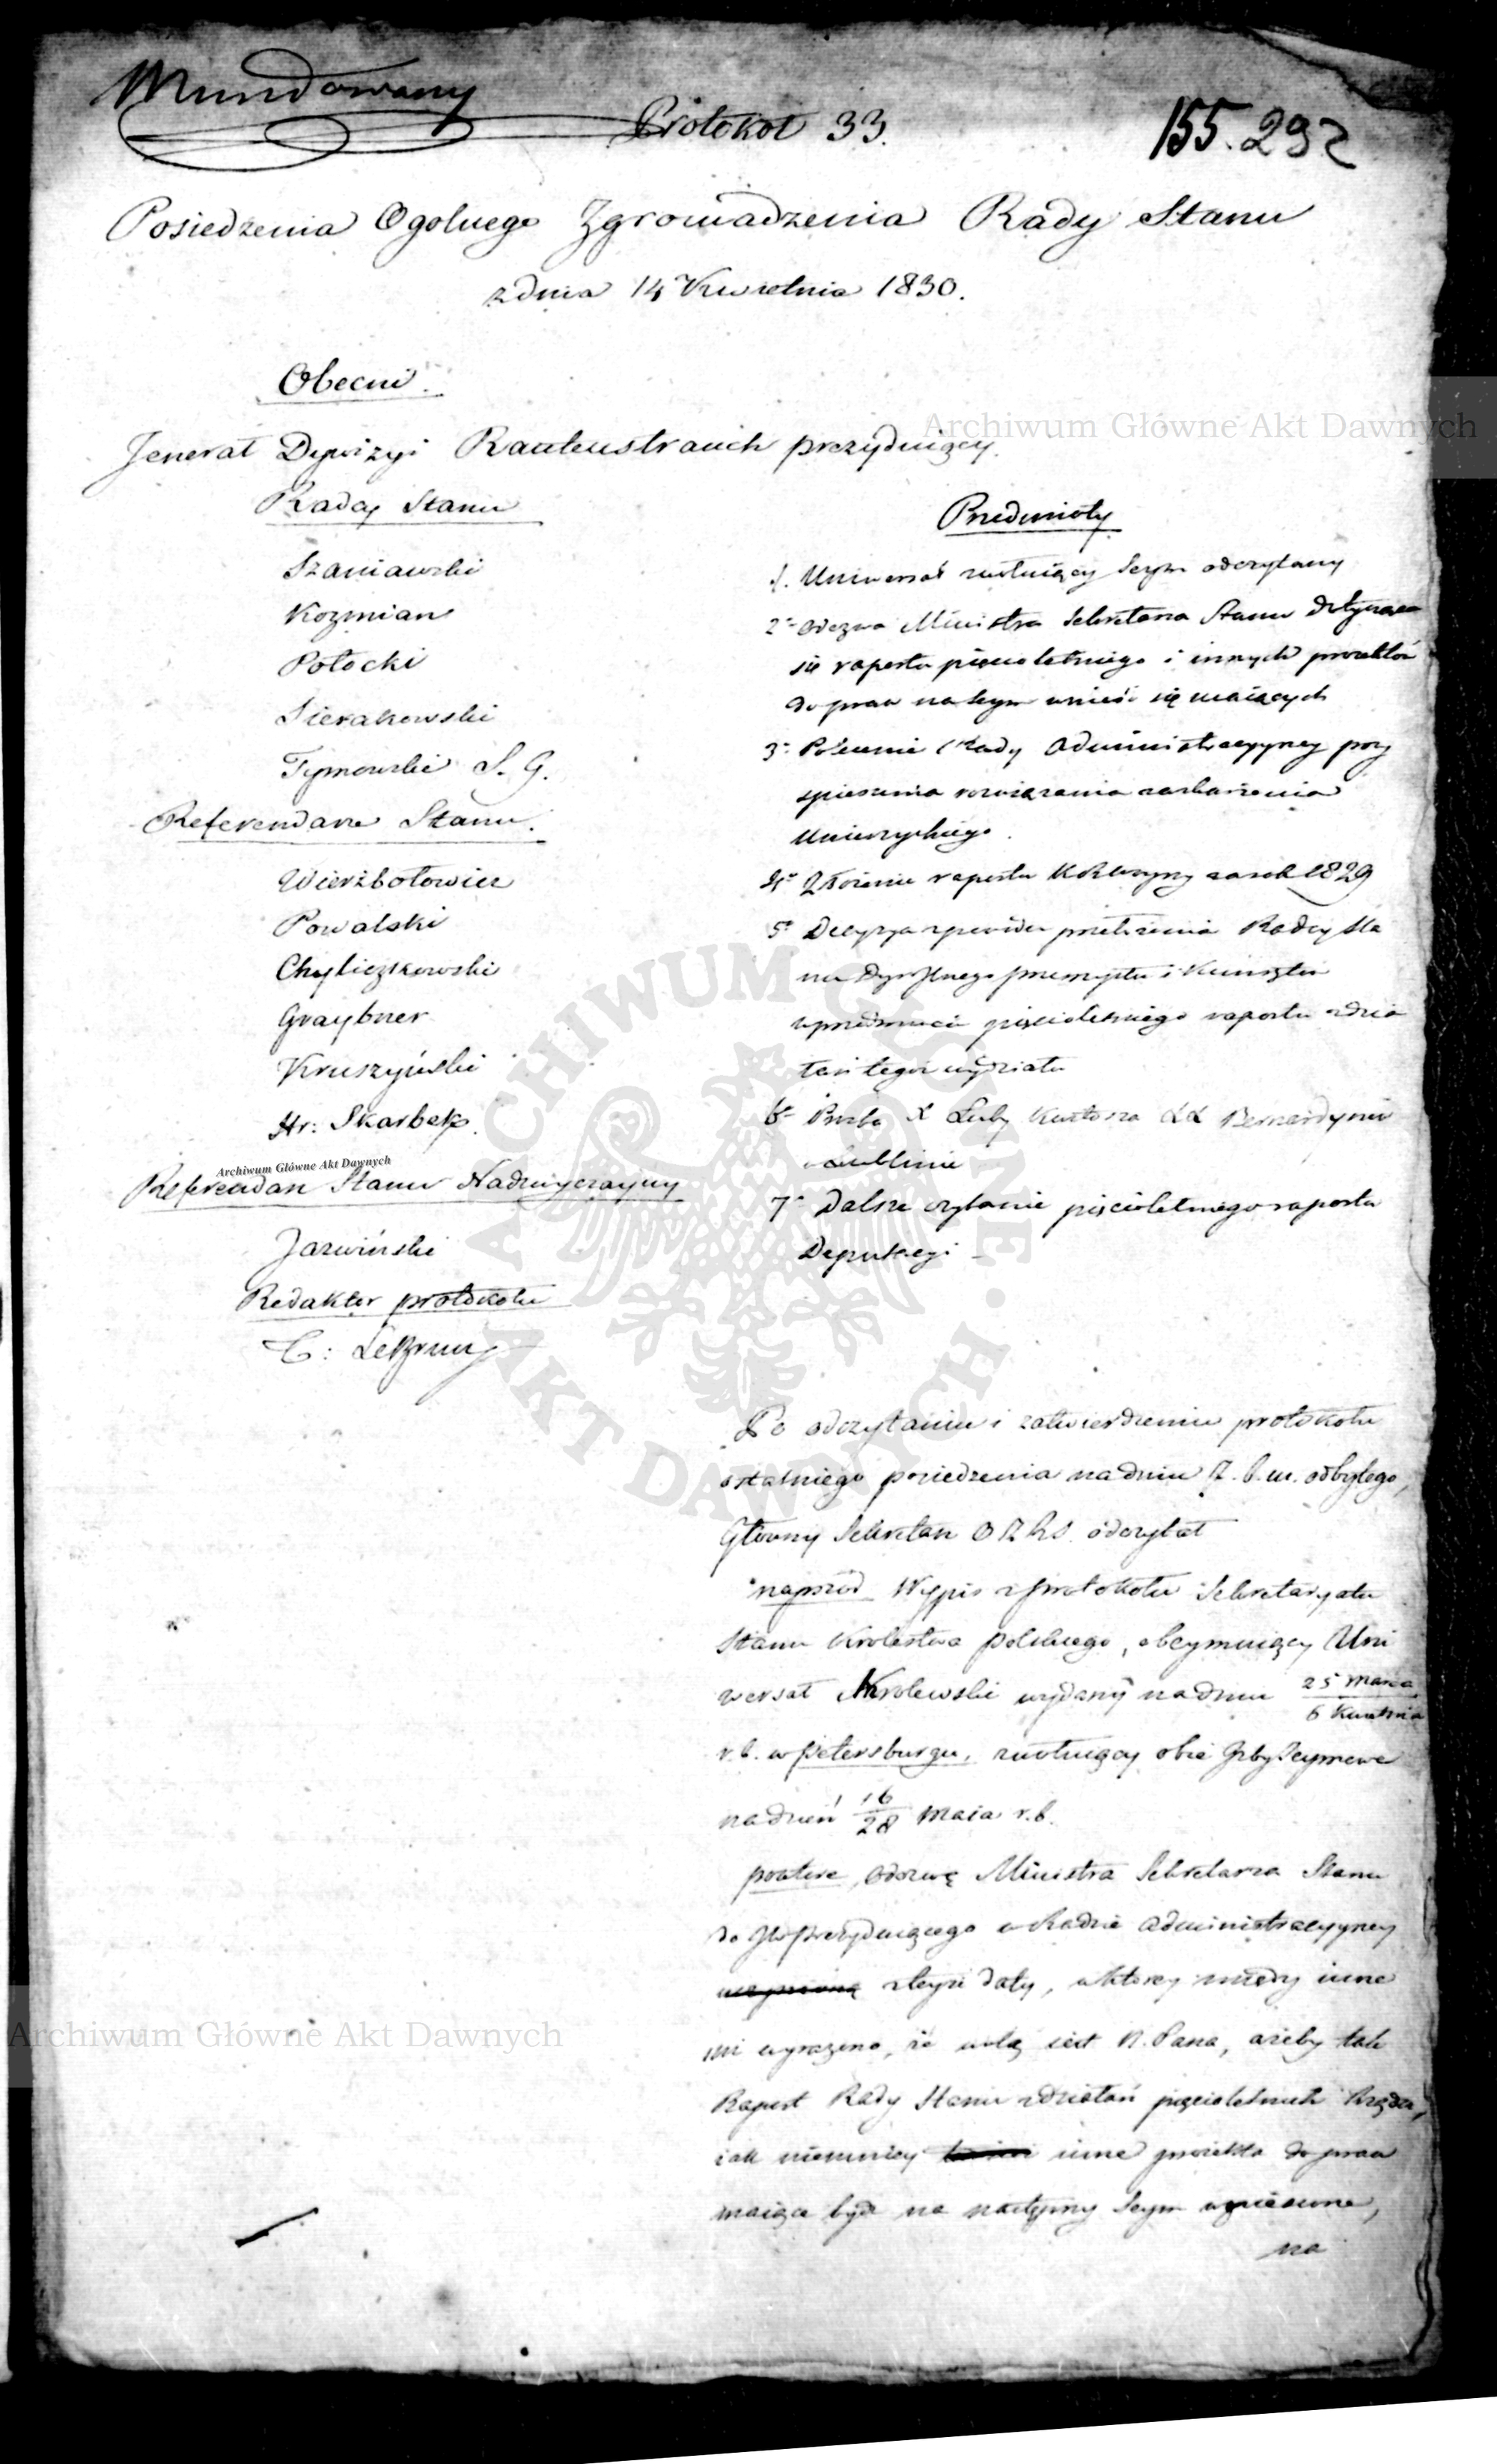 Mundowany
Protokoł 33.
155.292
Posiedzenia Ogolnego Zgromadzenia Rady Stanu
z dnia 14 Kwietnia 1830.
Obecni
Jenerał Dywizyi Rautenstrauch prezyduiący.
Radcy Stanu
Szaniawski
Kozmian
Potocki
Sierakowski
Tymowski S. G.
Referendarze Stanu.
Wierzbołowicz
Powalski
Chyliczkowski
Graybner
Kruszyński
Hr: Skarbek
Referendarz Stanu Nadzwyczayny
Jarwiński
Redaktor protokołu
C: LeBrun
Przedmioty
1. Uniwersał zwołuiący Seym odczytany
2° Odezwa Ministra Sekretarza Stanu dotycząca
się raportu pięcioletniego i innych proiektów
do praw na Seym wnieść się maiących
3° Polecenie Rady Administracyyney przy
spieszenia rozwiązania zaskarżenia
4° Złożenie raportu za rok 1829
5° Decyzya względem przełożenia Radcy Sta
nu Dyr Jlnego przemysłu i Kunsztów
w przedmiocie pięcioletniego raportu z dzia
łań tegoż wydziału
6° Prośba X Luby Kustosza XX Bernardynów
w Lublinie
7° Dalsze czytanie pięcioletniego raportu
Deputacyi
Po odczytaniu i zatwierdzeniu protokołu
ostatniego posiedzenia na dniu 7. b. m. odbytego,
Główny Sekretarz O Z R S. odczytał
naprzód Wypis z protokołu Sekretaryatu
Stanu Krolestwa polskiego, obeymuiący Uni
wersał Krolewski wydany na dniu 25 Marca
6 Kwietnia
r. b. w Petersburgu, zwołuiący obie Jzby Seymowe
na dzień 16/28 Maia r. b.
powtore, Odezwę Ministra Sekretarza Stanu
do JW Prezyduiącego w Radzie Administracyyney
z teyże daty, w ktorey między inne
mi wyrażono, że wolą iest N. Pana, ażeby tak
Raport Rady Stanu z działań pięcioletnich Rządu,
iak niemniey inne proiekta do praw
maiące być na następny Seym wniesione,
na
Archiwum Główne Akt Dawnych
Archiwum Główne Akt Dawnych
Archiwum Główne Akt Dawnych
ARCHIWUM GŁÓWNE AKT DAWNYCH